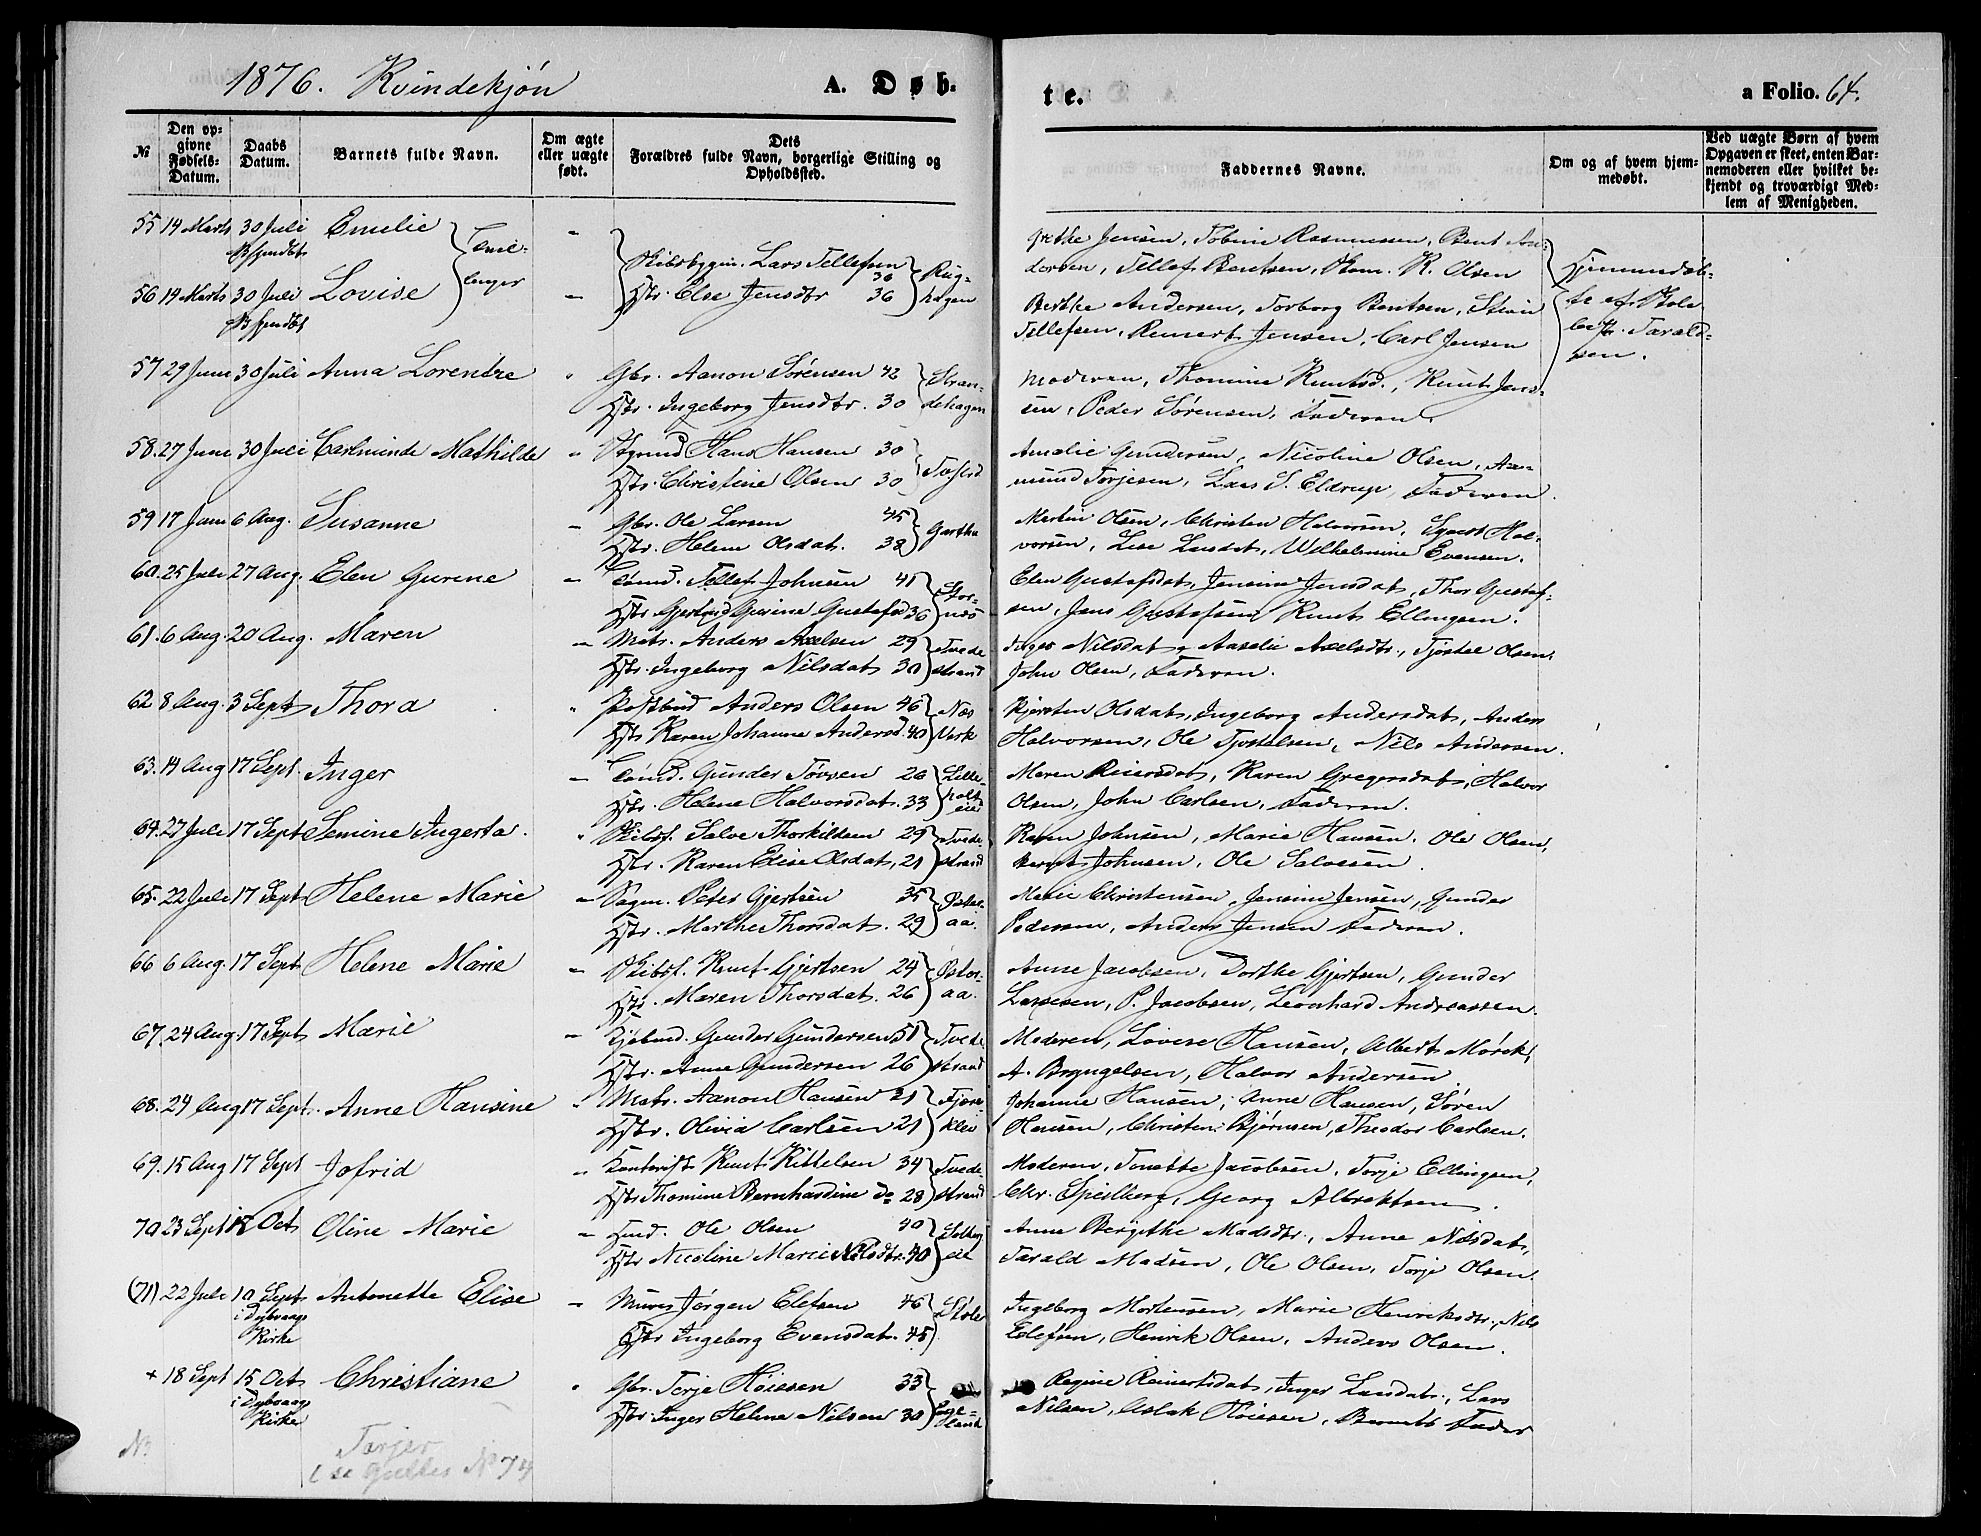 1876. Kvindekjön
A. Døb-
te.
a Folio. 64.
№
Den op-
givne
Fødsels-
Datum.
Daabs
Datum.
Barnets fulde Navn.
Om ægte
eller uægte
født.
Dets
Forældres fulde Navn, borgerlige Stilling og
Opholdssted.
Faddernes Navne.
Om og af hvem hjem-
medøbt.
Ved uægte Børn af hvem
Opgaven er skeet, enten Bar-
nemoderen eller hvilket be-
kjendt og troværdigt Med-
lem af Menigheden.
55 14 Marts 30 Juli Emelie
Skibsbyggm. Lars Tellefsen 36
Grethe Jensen, Tobine Rasmussen, Bent An-
dersen, Tellef Bentsen, K. Olsen
56 14 Marts 30 Juli Lovise
Hstr. Else Jensdtr 36
Berthe Andersen, Torborg Bentsen, Stian
Tellefsen, Reinert Jensen, Carl Jensen
Hjemmedøb-
te af Skole
Tarald-
sen.
57 29 Juni 30 Juli Anna Lorentze
Gbr. Aanon Sörensen 42
Hstr. Ingeborg Jensdtr. 30
Stran-
dehagen
Moderen, Thomine Knutsd., Knut Jens-
sen, Peder Sörensen, Faderen.
58. 27 Juni 30 Juli Carlminde Mathilde
Strmd Hans Hansen 30
Hstr. Christine Olsen 30
Amalie Gundersen, Nicoline Olsen, Aa-
mund Torjesen, Lars S. Eldrup, Faderen.
59 17 Juni 6 Aug. Susanne
Gbr. Ole Larsen 45
Hstr. Helene Olsdat. 38
Gartha
Martin Olsen, Christen Halvorsen, Hal-
vorsen, Lise Larsdat, Wilhelmine Evensen.
60. 25 Juli 27 Aug. Elen Gurine
Tellef Johnsen 41
Hstr Gjertrud Gurine Gustafsd 36
Stor-
næs
Elen Gustafsdat, Jensine Jensdat, Thor Gustaf-
sen, Jens Gustafsen, Knut Ellingsen.
61. 6 Aug. 20 Aug. Maren
Matr. Anders Axelsen 29
Hstr. Ingeborg Nilsdat 30
Tvede
strand
Inger Nilsdat, Aaselie Axelsdtr., Tjöstel Olsen,
John Olsen, Faderen.
62 8 Aug. 3 Sept Thora
Postbud Anders Olsen 46
Hstr Karen Johanne Andersd. 40
Næs
Verk
Kjersten Olsdat, Ingeborg Andersdat, Anders
Halvorsen, Ole Tjostelsen, Nils Andersen.
63. 14 Aug 17 Sept. Inger
Gunder Tövsen 26
Hstr. Helene Halvorsdat. 33
Lille-
holt
eie
Maren Reiersdat, Karen Gregersdat, Halvor
Olsen, John Carlsen, Faderen.
64. 27 Juli 17 Sept Semine Ingerta.
Skibsf. Salve Thorkildsen 29
Hstr. Karen Elise Olsdat, 21
Tvede
strand
Karen Johnsen, Marie Hansen, Ole Olsen,
Bernt Johnsen, Ole Salvesen.
65. 22 Juli 17 Sept Helene Marie
Sagm. Peter Gjertsen 35
Hstr. Marthe Thorsdat. 29
Øster-
aa.
Marie Christensen, Jensine Jensen, Gunder
Pedersen, Anders Jensen Faderen.
66 6 Aug. 17 Sept Helene Marie
Skibsf. Knut Gjertsen 24
Hstr. Maren Thorsdat. 26
Øster-
aa.
Anne Jacobsen, Dorthe Gjertsen, Gunder
Larsen, P. Jacobsen, Leonhard Andreassen.
67. 24 Aug 17 Sept Marie
Kjöbmd. Gunder Gundersen 51
Hstr. Anne Gundersen 26
Tvede
strand
Moderen, Lovise Hansen, Albert Mörch,
A. Bryngelsen, Halvor Andersen
68. 24 Aug 17 Sept. Anne Hansine
Matr. Aanon Hansen 21
Hstr. Olivia Carlsen 21
Fjære-
klev
Johanne Hansen, Anne Hansen, Sören
Hansen, Christen Björnsen, Theodor Carlsen.
69. 15 Aug 17 Sept Jofrid
Kontorist Knut Kittelsen 34
Hstr Thomine Bernhardine do 28
Tvede
strand
Moderen, Tonette Jacobsen, Torje Ellingsen,
Chr. Speilberg, Georg Albretsen.
70 23 Sept Oct Oline Marie
Ole Olsen 40
Hstr Nicoline Marie Nilsdtr. 40
Solberg
eie
Anne Bergithe Madsdtr., Anne Nilsdat,
Tarald Madsen, Ole Olsen, Torje Olsen.
(71) 22 Juli 10 Sept Antonette Elise
i Dybvaags
Kirke
Murer Jørgen Elefsen 46
Hstr Ingeborg Evensdat. 45
Støle
Ingeborg Mortensen, Marie Henriksdtr., Nils
Elefsen, Henrik Olsen, Anders Olsen.
+ 18 Sept 15 Oct Christiane
i Dybvaags
Kirke
Gbr. Terje Höiesen 33
Hstr Inger Helene Nilsen 30
Lage-
strand
Regine Reinertsdat, Inger Larsdat., Lars
Nilsen, Aslak Höiesen, Barnets Fader
№
Torjer
(se Gutter № 74